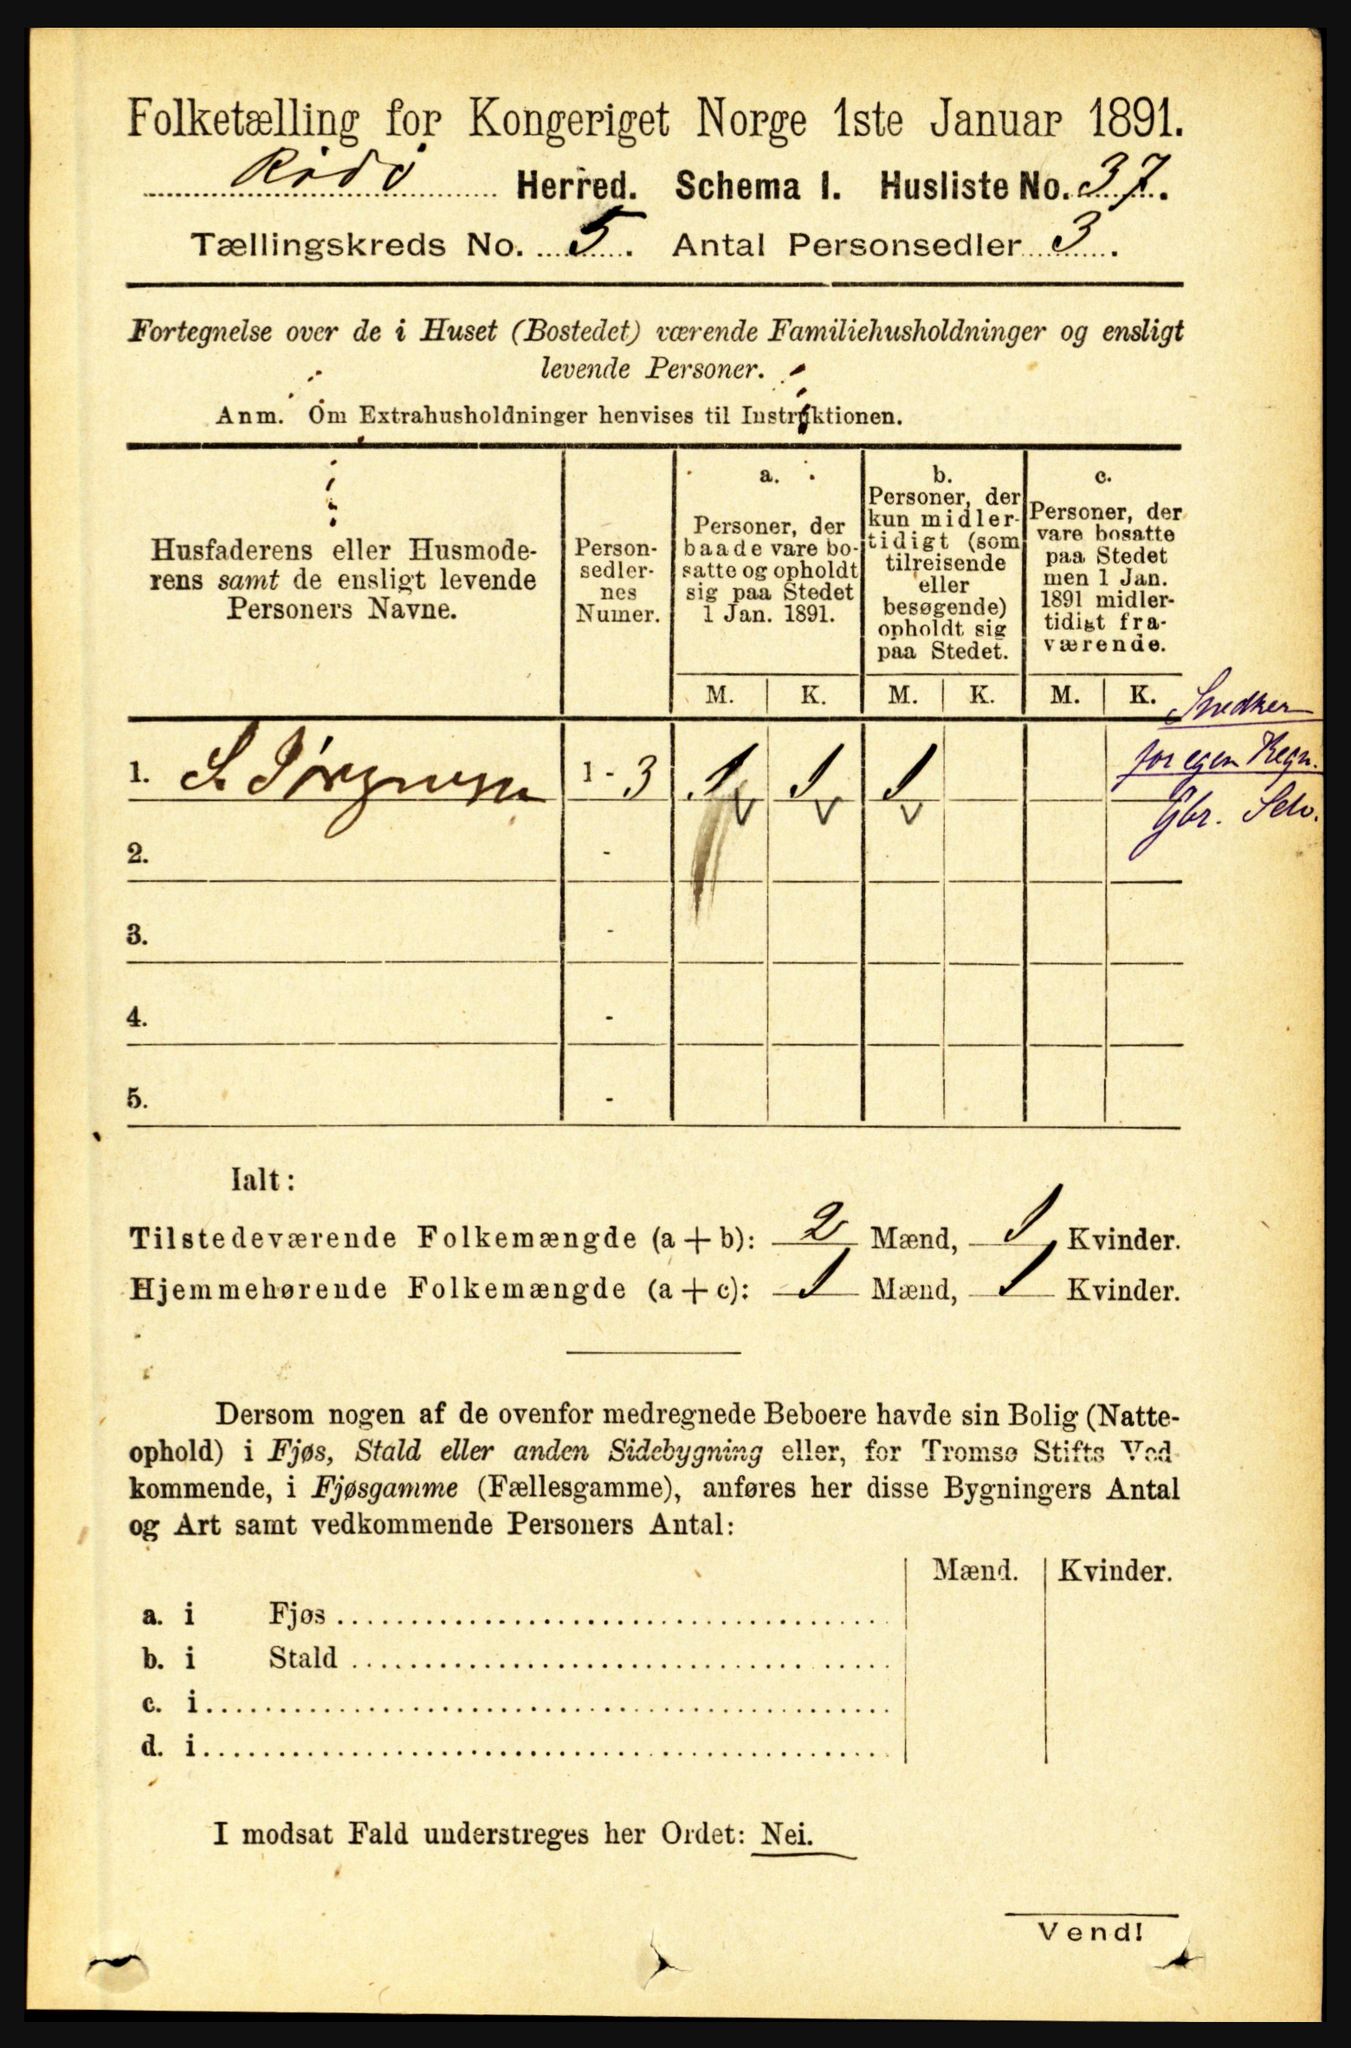 Folketælling for Kongeriget Norge 1ste Januar 1891.
Rödö Herred. Schema I. Husliste No. 37.
Tællingskreds No. 5. Antal Personsedler 3.
Fortegnelse over de i Huset (Bostedet) værende Familiehusholdninger og ensligt
levende Personer.
Anm. Om Extrahusholdninger henvises til Instruktionen.
Husfaderens eller Husmode-
rens samt de ensligt levende
Personers Navne.
Person-
sedler-
nes
Numer.
a.
Personer, der
baade vare bo-
satte og opholdt
sig paa Stedet
1 Jan. 1891.
b.
Personer, der
kun midler-
tidigt (som
tilreisende
eller
besøgende)
opholdt sig
paa Stedet.
c.
Personer, der
vare bosatte
paa Stedet
men 1 Jan.
1891 midler-
tidigt fra-
værende.
M. K. M. K. M. K.
Snedker
for egen Regn.
Gbr. Selv.
1. S. Jørgensen 1 - 3 1 1 1
2. -
3. -
4. -
5. -
Ialt:
Tilstedeværende Folkemængde (a + b): 2 Mænd, 1 Kvinder.
Hjemmehørende Folkemængde (a + c): 1 Mænd, 1 Kvinder.
Dersom nogen af de ovenfor medregnede Beboere havde sin Bolig (Natte-
ophold) i Fjøs, Stald eller anden Sidebygning eller, for Tromsø Stifts Ved
kommende, i Fjøsgamme (Fællesgamme), anføres her disse Bygningers Antal
og Art samt vedkommende Personers Antal:
Mænd. Kvinder.
a. i Fjøs
b. i Stald
c. i
d. i
I modsat Fald understreges her Ordet: Nei.
Vend!